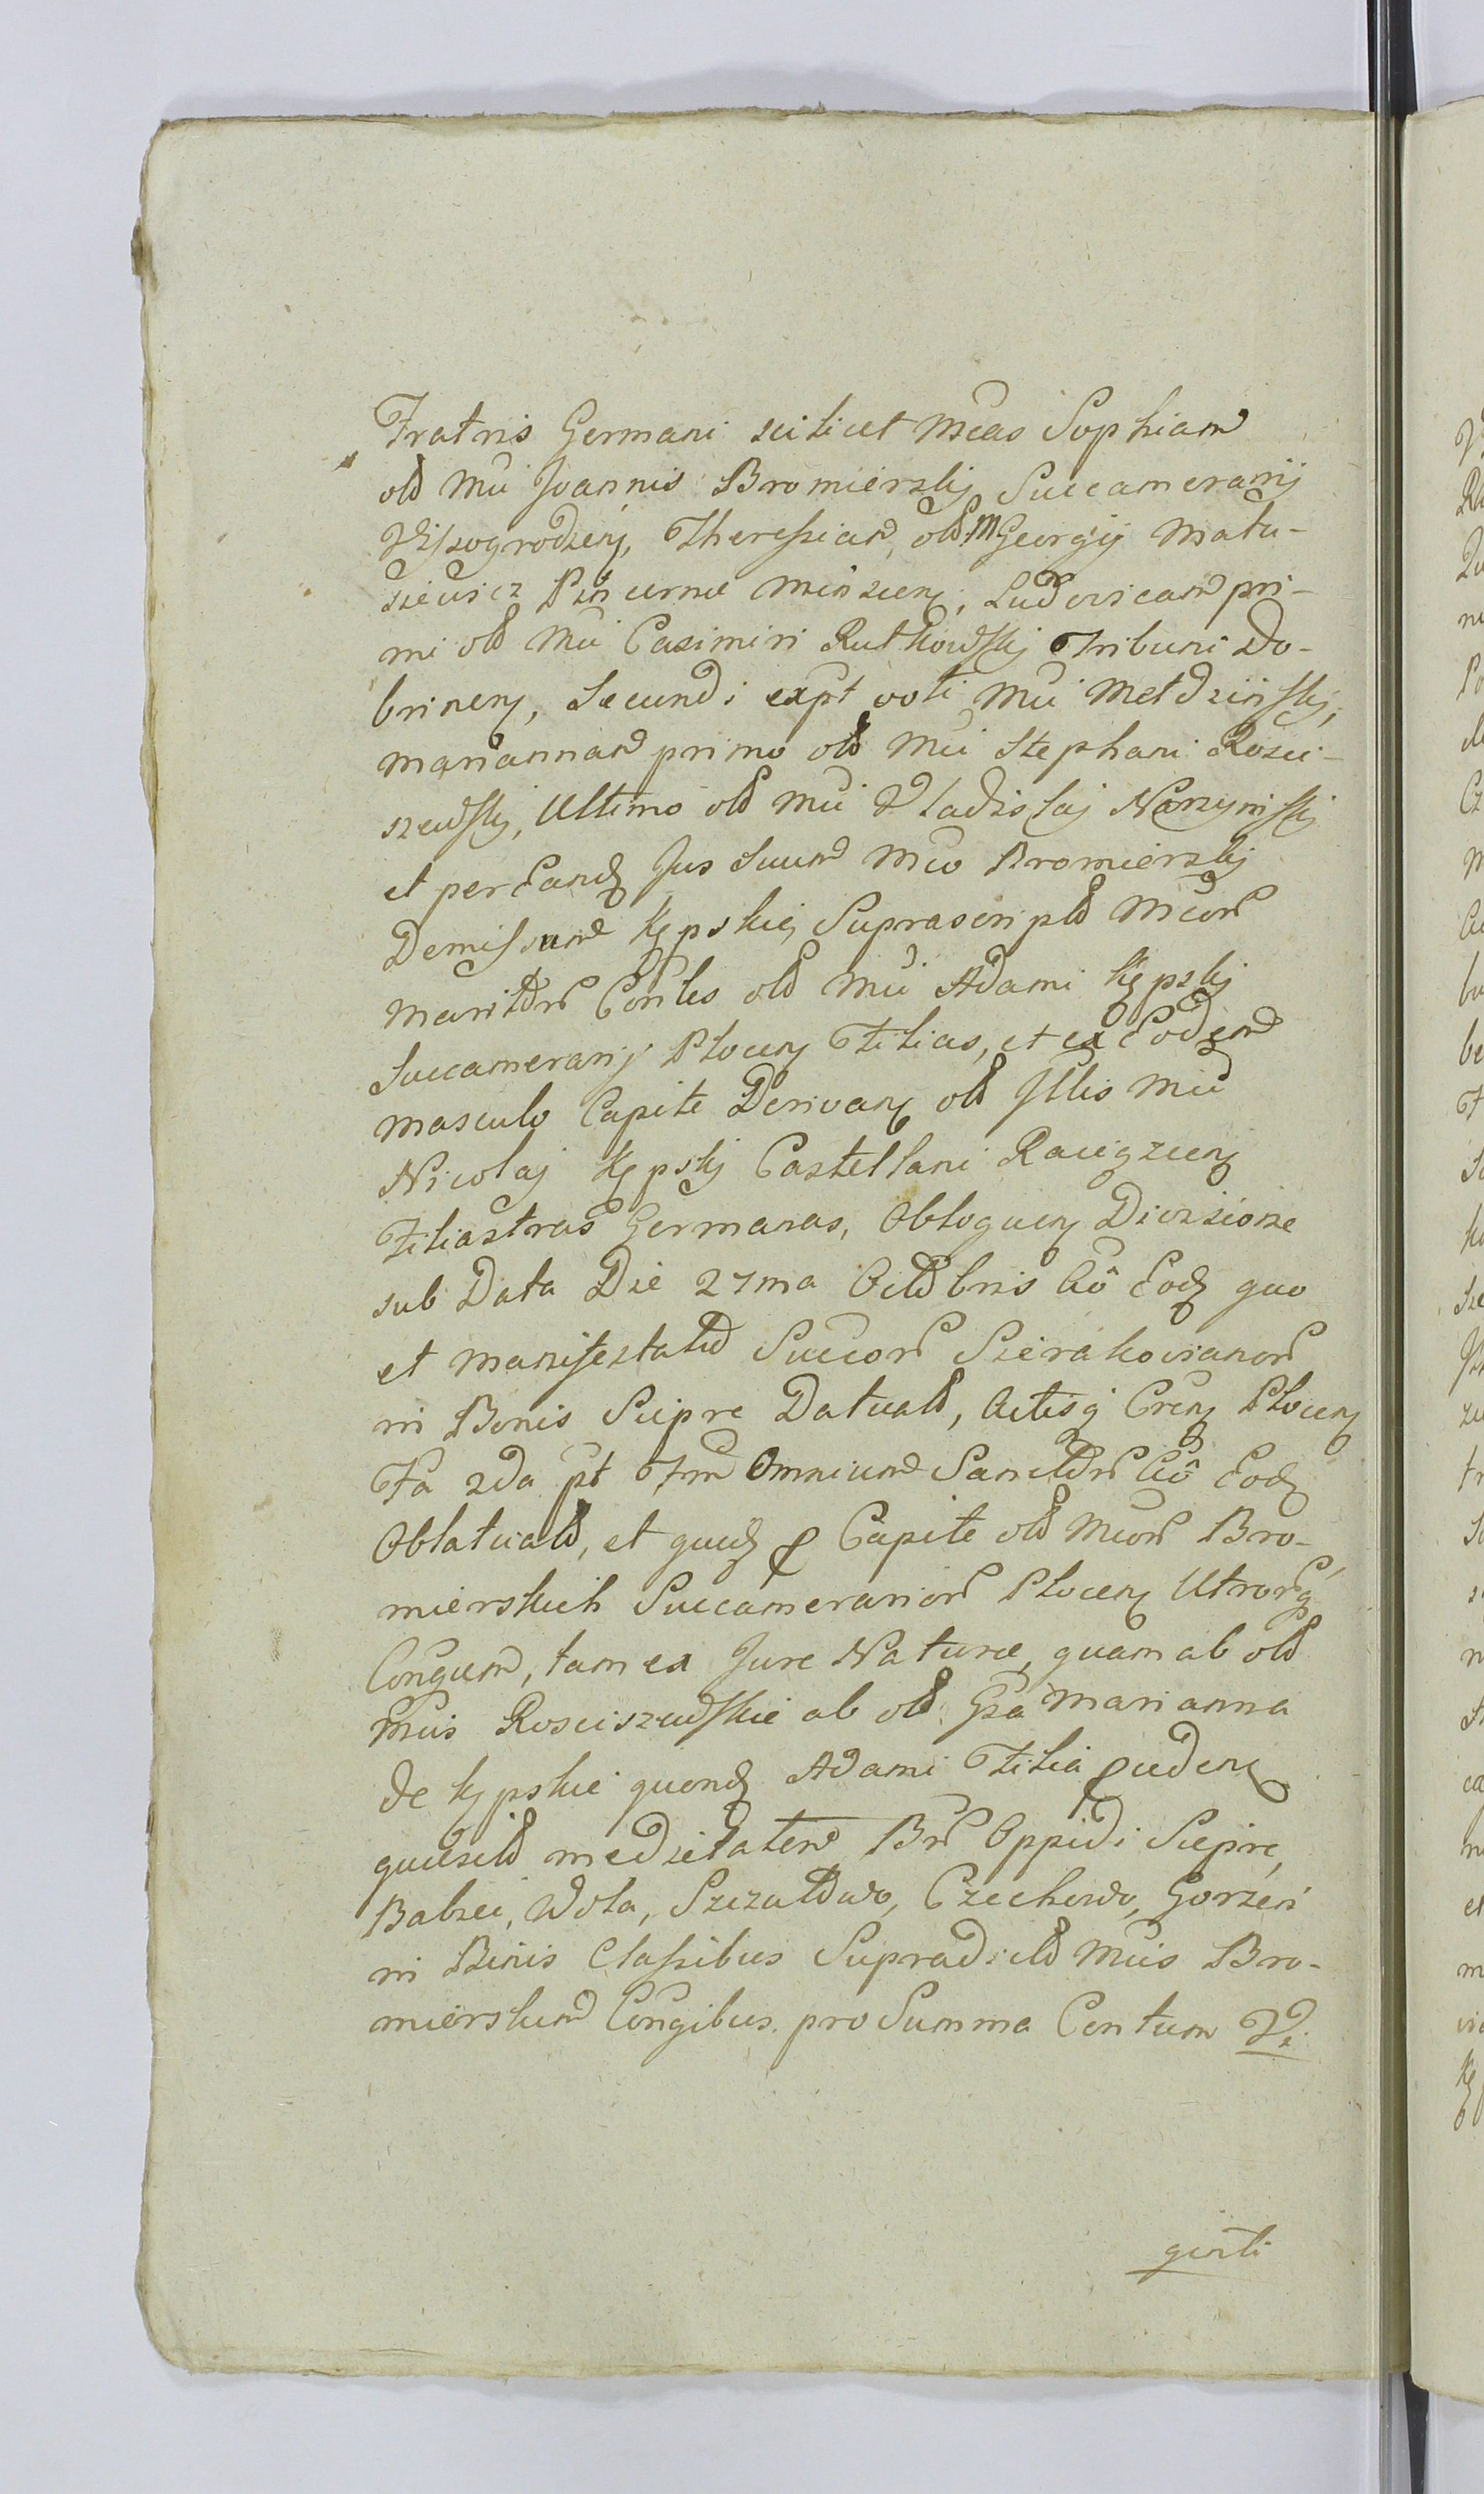 Fratris Germani scilicet Mcas Sophiam
old Mci Joannis Bromierskij Succamerarij
Wyszogrodzen, Theressiam, old M Georgij Matu-
siewicz Pincernæ Minscen, Ludovicam pri-
mi old Mci Casimiri Rutkowskij Tribuni Do-
brinen, Secundi expt voti Mci Metdzinskij,
Mariannam primo old Mci Stephani Rosci-
szewskij, Ultimo old Mci Vladislaj Narzymskij
et per Eand Jus Suum Mco Bromierskij
Demissum Kępskie, Suprascriptd Mcor
Maritor Contes old Mci Adami Kępskij
Succamerarij Plocen Filias, et ex Eodem
masculo Capite Derivan old Illis Mci
Nicolaj Kępskij Castellani Raciązcen
Filiastras Germanas, Obloquen Divisione
sub Data Die 27ma Octobris Ao Eod quo
et Manifestatio Succor Szierakovianor
in Bonis Siepre Datuald, Actisq Cren Plocen
Fa 2da pt Fm Omnium Sanctor Ao Eod
Oblatuald, et quid p Capite old Mcor Bro-
mierskich Succamerarior Plocen Utrorq
Congum, tam ex Jure Naturæ, quam ab old
Mcis Rosciszewskie ab old Gsa Marianna
de Kępskie quond Adami Filia
quæsitd medietatem Bnr Oppidi Siepre,
Babiec, Wola, Szczutowo, Czechowo, Gorzen
in Binis Classibus Supradictd Mcis Bro-
mierskim Congibus pro Summa Centum Vi
ginti